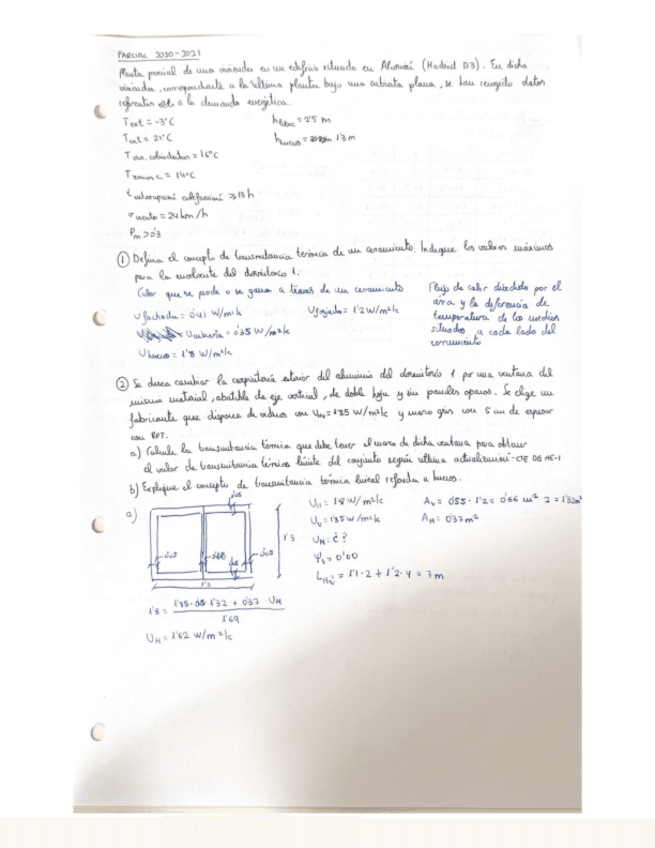 PARCIAL 2020-2021
Planta parcial de una vivienda en un edificio situado en (Madrid D3). En dicha
vivienda, correspondiente a la última planta bajo una cubierta plana, se han recogido datos
referentes a la demanda energética.
Text = -3°C
hlibre = 2'5 m
Tint = 21°C
hhueco = 1'3 m
T colindantes = 16°C
T = 14°C
t calefacción ≥ 13h
viento = 24 km/h
Pm > 0'3
① Defina el concepto de transmitancia térmica de un cerramiento. Indique los valores máximos
para la envolvente del dormitorio 1.
Calor que se pierde o se gana a través de un cerramiento
Flujo de calor dividido por el
área y la diferencia de
temperatura de los medios
situados a cada lado del
cerramiento
U fachada = 0'41 W/m²k
U forjado = 1'2 W/m²k
U cubierta = 0'35 W/m²k
U hueco = 1'8 W/m²k
② Se desea cambiar la carpintería exterior del aluminio del dormitorio 1 por una ventana del
mismo material, abatible de eje vertical, de doble hoja y sin paneles opacos. Se elige un
fabricante que dispone de vidrios con = 1'85 W/m²k y marco gris con 5 cm de espesor
con RPT.
a) Calcule la transmitancia térmica que debe tener el marco de dicha ventana para obtener
el valor de transmitancia térmica límite del conjunto según última actualización CTE DB HE-1
b) Explique el concepto de transmitancia térmica lineal referida a huecos.
a)
UH = 1'8 W/m²k
Av = 0'55 · 1'2 = 0'66 m² 2 = 1'32m²
Uv = 1'85 W/m²k
AM = 0'37 m²
1'3
UM = ¿?
Ψv = 0'00
= 1'1·2 + 1'2·4 = 7m
1'32 + 0'37 · UM
1'8 =
1'69
UM = 1'62 W/m²k